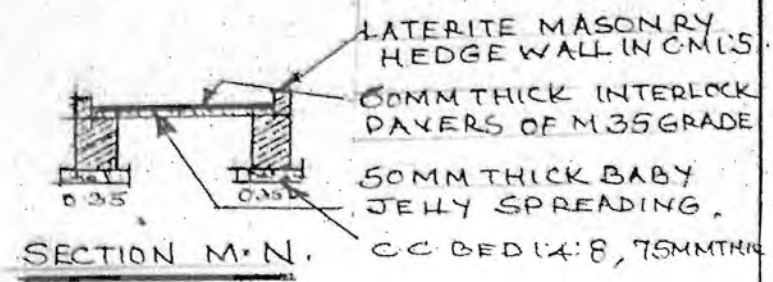 LATERITE MASONRY
HEDGE WALL IN C.M 1:5
60MM THICK INTERLOCK
PAVERS OF M35 GRADE
50MM THICK BABY
JELLY SPREADING.
C.C BED 1:4:8, 75MMTHIC
0.35 0.35
SECTION M-N.